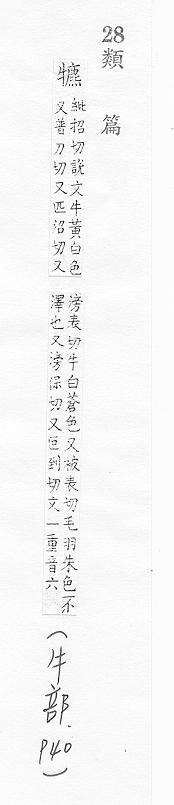 28
類篇
犥
紕招切說文牛黃白色
又普刀切又匹沼切又
滂表切牛白蒼色又被表切毛羽朱色不
澤也又滂保切又叵到切文一重音六
(牛部.P40)